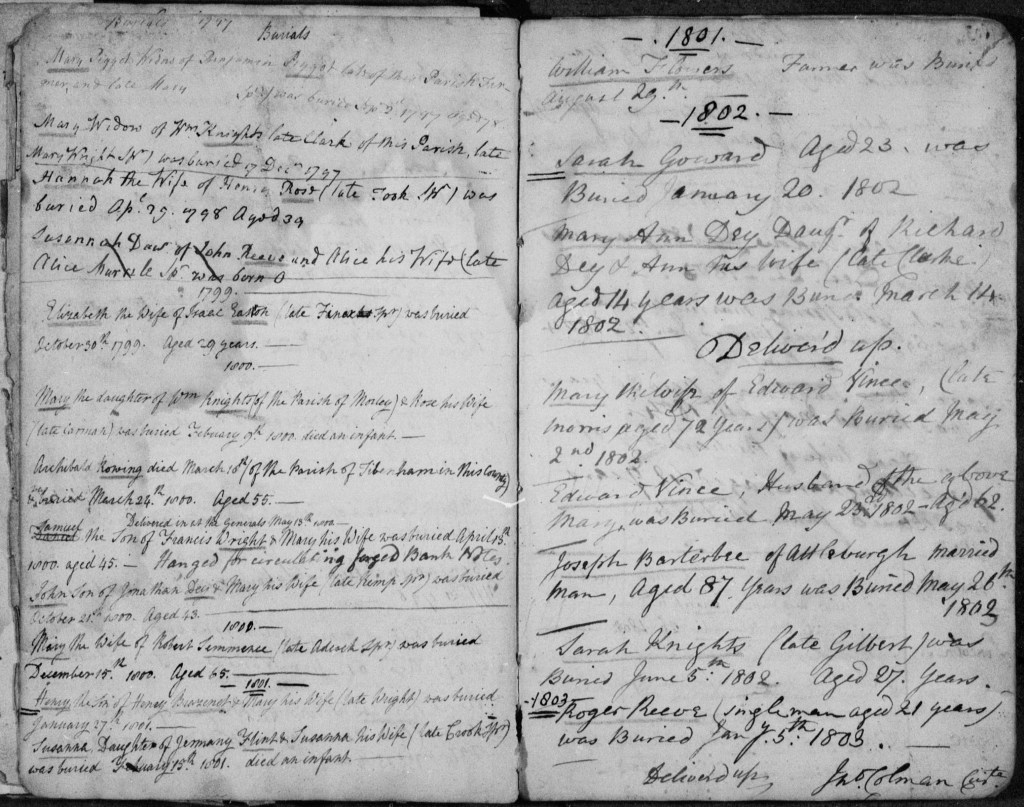 Burials 1797
Burials
Mary Piggot Widow of Benjamin Piggot late of this Parish Far-
mer, and late Mary Spr) was buried 1797 aged 78
Mary Widow of Wm Knights late Clark of this Parish, late
Mary Wright Spr) was buried 17 Decr 1797
Hannah the Wife of Henry Rose (late Took Spr) was
buried Apl 29. 1798 Aged 39
Susannah Daur of John Reeve and Alice his Wife (late
Alice Spr was born O
1799.
Elizabeth the Wife of Isaac Easton (late Spr) was buried
October 30th 1799. Aged 29 years. —
1800. —
Mary the daughter of Wm Knights (of the Parish of Morley) & Rose his Wife
(late Carman) was buried February 9th 1800. died an infant —
Archibald Rowing died March 16th/of the Parish of Tibenham in this County)
& was buried March 24th 1800. Aged 55. —
Delivered in at the Generals May 13th 1800 —
Samuel
Daniel the Son of Francis Wright & Mary his Wife was buried April 13th
1800. aged 45. — Hanged for circulating forged Bank Notes.
John Son of Jonathan Dey & Mary his Wife (late Kemp Spr) was buried
October 21st 1800. Aged 43.
1800. —
Mary the Wife of Robert Semmence (late Adcock Spr) was buried
December 15th 1800. Aged 65. —
— 1801. —
Henry the Son of Henry & Mary his Wife (late Wright) was buried
January 27th 1801. —
Susanna Daughter of Jermany Flint & Susanna his Wife (late Crook Spr)
was buried February 13th 1801. died an infant. —
— . 1801 . —
William Flowers Farmer was Buried
August 29th
— 1802. —
Sarah Goward Aged 23. was
Buried January 20. 1802
Mary Ann Dey Daugr of Richard
Dey & Ann his wife (late Clarke)
aged 14 years was Buried March 14.
1802.
Deliver'd up.
Mary the wife of Edward Vince, (late
Morris aged 72 years) was Buried May
2nd 1802.
Edward Vince, Husband of the above
Mary, was Buried May 23rd 1802 — Aged 62.
Joseph Barterbee of Attleburgh married
man, Aged 87. Years was Buried May 26th
1802
Sarah Knights (late Gilbert) was
Buried June 5th 1802. Aged 27. Years.
- 1803
Roger Reeve (single man aged 21 years)
was Buried Jany. 5th 1803. —
Deliverd up Jno Colman Curte